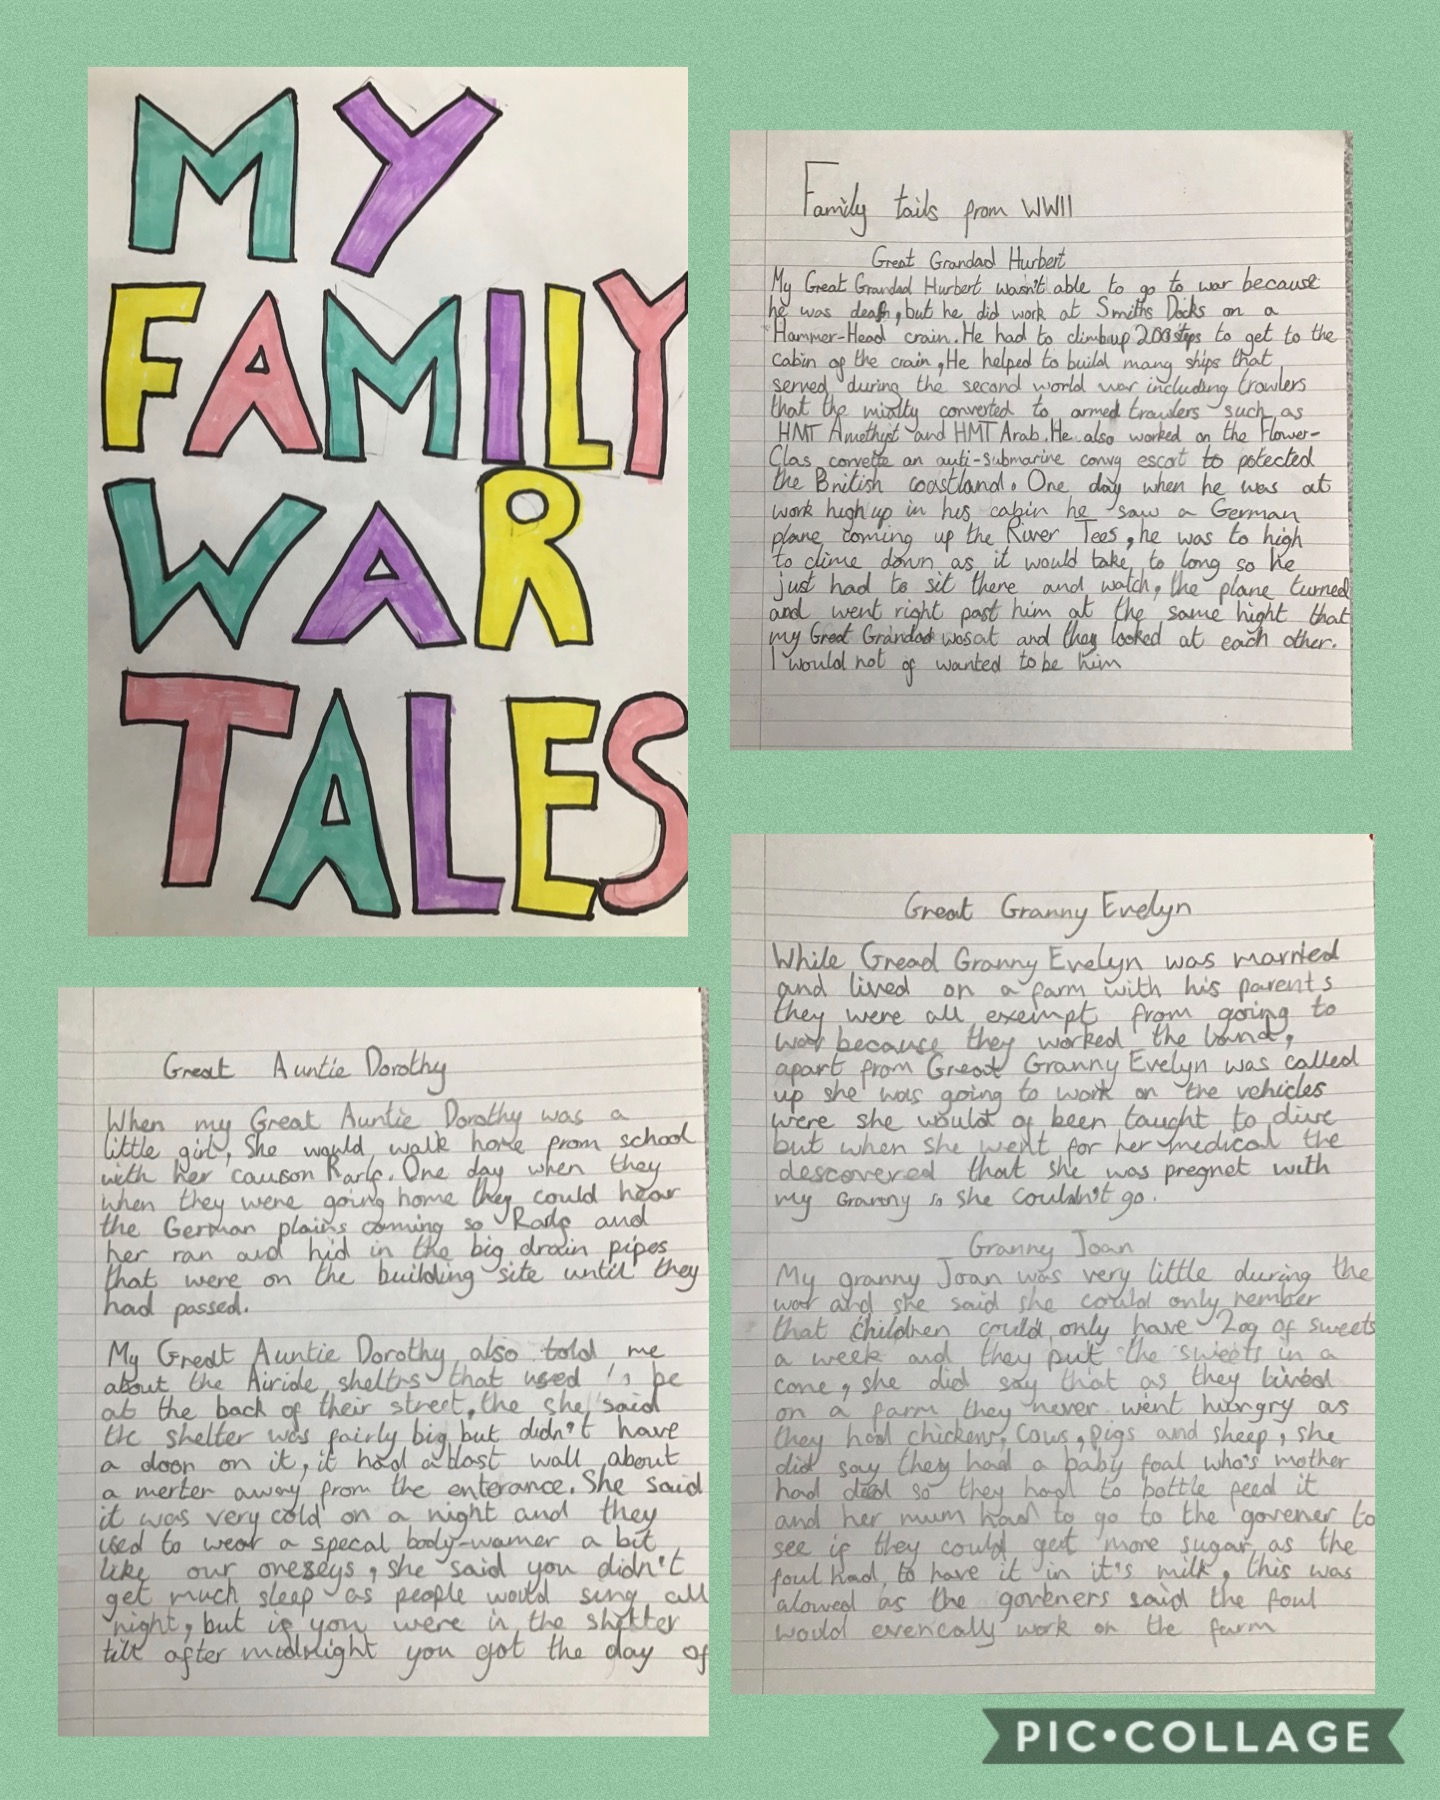 MY
FAMILY
WAR
TALES
Family tails from WWII
Great Grandad Hurbert
My Great Grandad Hurbert wasn't able to go to war because
he was deaf, but he did work at Smiths Docks on a
Hammer-Head crain. He had to climb up 200 steps to get to the
cabin of the crain, He helped to build many ships that
served during the second world war including trawlers
that the converted to armed trawlers such as
HMT Amethyst and HMT Arab. He also worked on the Flower-
Clas corvette an anti-submarine convy escort to potected
the British coastland. One day when he was at
work high up in his cabin he saw a German
plane coming up the River Tees, he was to high
to clime down as it would take to long so he
just had to sit there and watch, the plane turned
and went right past him at the same hight that
my Great Grandad was at and they looked at each other.
I would not of wanted to be him
Great Auntie Dorothy
When my Great Auntie Dorothy was a
little girl, She would walk home from school
with her One day when they
when they were going home they could hear
the German plains coming so and
her ran and hid in the big drain pipes
that were on the building site until they
had passed.
My Great Auntie Dorothy also told me
about the Airide sheltrs that used to be
at the back of their street, the she said
the shelter was fairly big but didn't have
a door on it, it had a blast wall about
a merter away from the enterance. She said
it was very cold on a night and they
used to wear a specal body-wamer a bit
like our oneseys, she said you didn't
get much sleep as people would sing all
night, but if you were in the shelter
till after midnight you got the day of
Great Granny Evelyn
While Gread Granny Evelyn was married
and lived on a farm with his parents
they were all exeimpt from going to
war because they worked the land,
apart from Great Granny Evelyn was called
up she was going to work on the vehicles
were she would of been taught to dive
but when she went for her medical the
descovered that she was pregnet with
my Granny so she couldn't go.
Granny Joan
My granny Joan was very little during the
war and she said she could only rember
that children could only have 2og of sweets
a week and they put the sweets in a
cone, she did say that as they lived
on a farm they never went hungry as
they had chickens, cows, pigs and sheep, she
did say they had a baby foal who's mother
had died so they had to bottle feed it
and her mum had to go to the govener to
see if they could get more sugar as the
foul had to have it in it's milk, this was
alowed as the goveners said the foul
would evenically work on the farm
PIC•COLLAGE